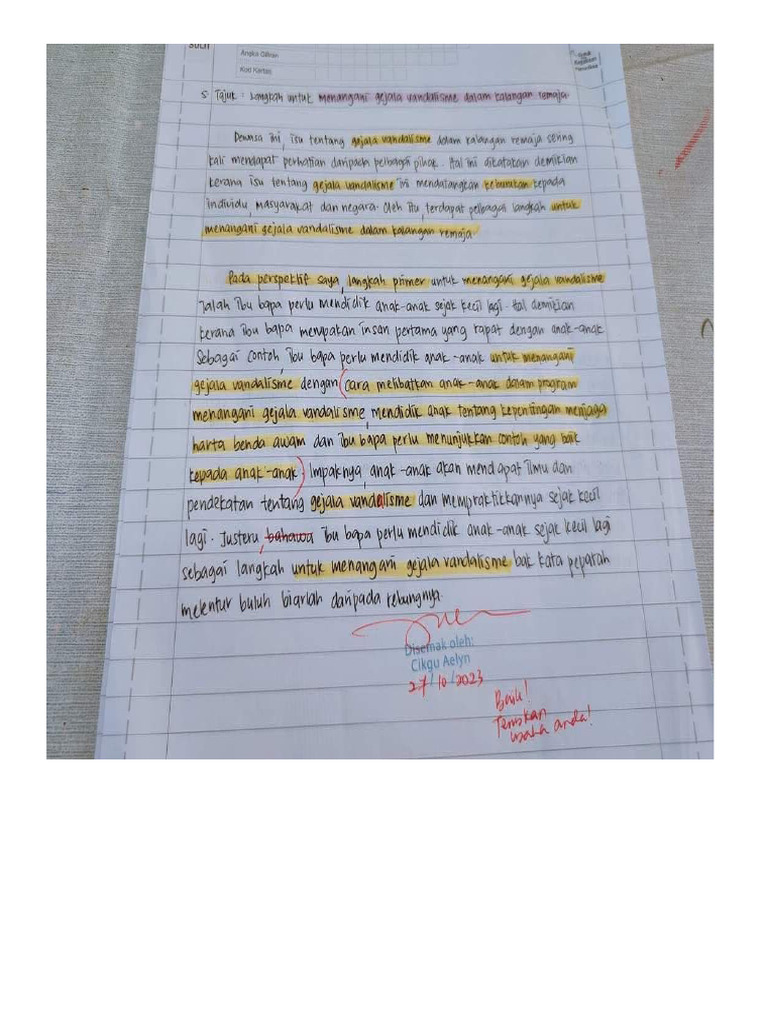 SULIT
Angka Giliran
Kod Kertas
Untuk
Kegunaan
Pemeriksa
5. Tajuk : Langkah untuk menangani gejala vandalisme dalam kalangan remaja.
Dewasa ini, isu tentang gejala vandalisme dalam kalangan remaja sering
kali mendapat perhatian daripada pelbagai pihak. Hal ini dikatakan demikian
kerana isu tentang gejala vandalisme ini mendatangkan keburukan kepada
individu, masyarakat dan negara. Oleh itu, terdapat pelbagai langkah untuk
menangani gejala vandalisme dalam kalangan remaja.
Pada perspektif saya, langkah primer untuk menangani gejala vandalisme
ialah ibu bapa perlu mendidik anak-anak sejak kecil lagi. Hal demikian
kerana ibu bapa merupakan insan pertama yang rapat dengan anak-anak.
Sebagai contoh, ibu bapa perlu mendidik anak-anak untuk menangani
gejala vandalisme dengan (cara melibatkan anak-anak dalam program
menangani gejala vandalisme, mendidik anak tentang kepentingan menjaga
harta benda awam dan ibu bapa perlu menunjukkan contoh yang baik
kepada anak-anak.) Impaknya, anak-anak akan mendapat ilmu dan
pendekatan tentang gejala vandalisme dan mempraktikkannya sejak kecil
lagi. Justeru, bahawa ibu bapa perlu mendidik anak-anak sejak kecil lagi
sebagai langkah untuk menangani gejala vandalisme bak kata pepatah
melentur buluh biarlah daripada rebungnya.
Disemak oleh:
Cikgu Aelyn
27/10/2023
Baik!
Teruskan
usaha anda!